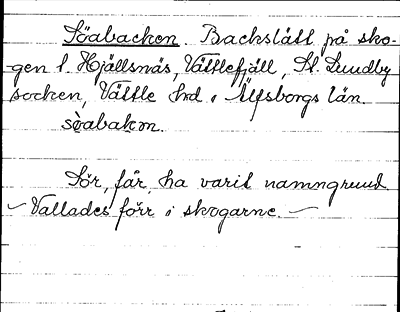 Söabacken. Backslätt på sko-
gen t. Hjällsnäs, Vättlefjäll, St. Lundby
socken, Vättle hrd i Älfsborgs län.
sòabakm.
Sör, får, ha varit namngrund
– Vallades förr i skogarne. –